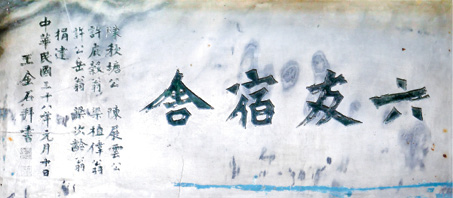 六友宿舍
陳秋塘公 陳展雲公
許辰穀翁 梁植偉翁
許公岳翁 梁次齡翁
捐建
中華民國三十八年元月十日
王金石書